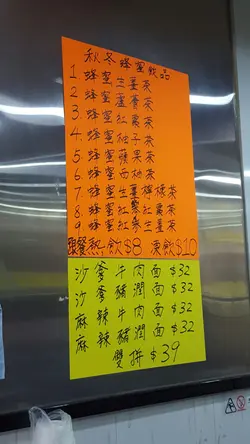 秋冬蜂蜜飲品
1. 蜂蜜生薑茶
2. 蜂蜜蘆薈茶
3. 蜂蜜紅棗茶
4. 蜂蜜柚子茶
5. 蜂蜜蘋果茶
6. 蜂蜜西柚茶
7. 蜂蜜生薑檸檬茶
8. 蜂蜜紅棗紅棗茶
9. 蜂蜜紅棗生薑茶
跟餐熱飲$8 凍飲$10
沙爹牛肉面$32
沙爹豬潤面$32
麻辣牛肉面$32
麻辣豬潤面$32
雙拼$39